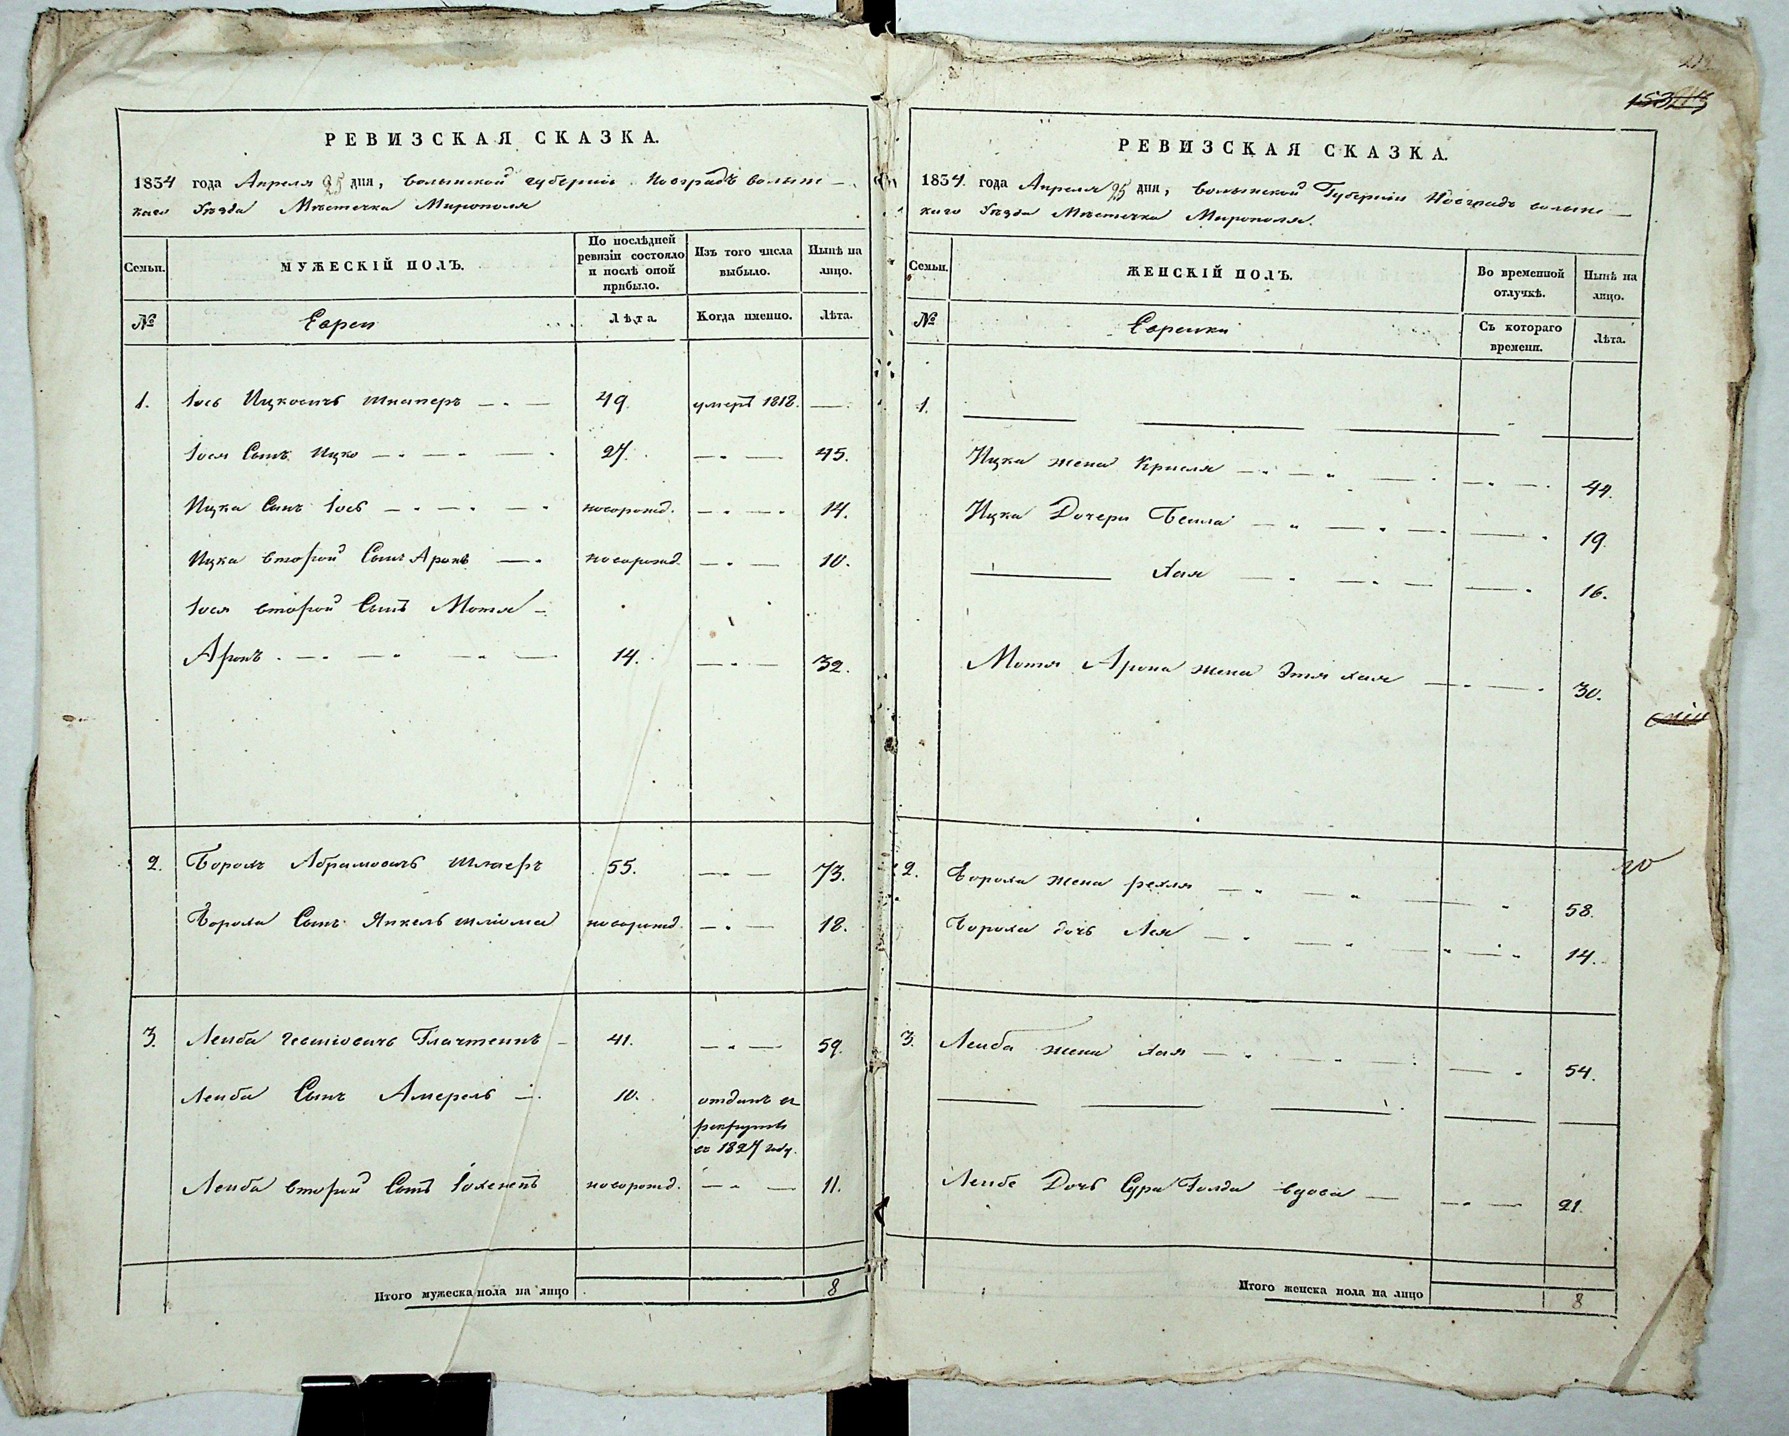 РЕВИЗСКАЯ СКАЗКА.
1834 года Апреля 25 дня, Волынской губерніи Новградъ волын-
каго Уезда Мѣстечка Мирополя
Семьи.
МУЖЕСКІЙ ПОЛЪ.
По послѣдней ревизіи состояло и послѣ оной прибыло.
Изъ того числа выбыло.
Нынѣ на лицо.
№
Евреи
Лѣта
Когда именно.
Лѣта.
1. Іось Ицковичъ 49 умеръ 1818. —
Іося Сынъ Ицко 27. 45.
Ицка Сынъ Іось новорожд. 14.
Ицка второй Сынъ Аронъ новорожд. 10.
Іося второй Сынъ Мотя
Аронъ 14. 32.
2. Борохъ Абрамовичъ 55. 73.
Бороха Сынъ Янкель шліома новорожд. 18.
3. Лейба 41. 59.
Лейба Сынъ Амерель 10. отданъ въ
рекруты
въ 1827 году.
Лейба второй Сынъ новорожд. 11.
Итого мужеска пола на лицо 8
РЕВИЗСКАЯ СКАЗКА.
1834. года Апреля 25 дня, Волынской Губерніи Новградъ волын-
каго Уезда Мѣстечка Мирополя.
Семьи.
ЖЕНСКІЙ ПОЛЪ.
Во временной отлучкѣ.
Нынѣ на лицо.
№
Еврейки
Съ котораго времени.
Лѣта.
1.
Ицка жена Крисля 44.
Ицка Дочери Бейла 19.
Хая 16.
Мотя Арона жена Этя хая 30.
2. Бороха жена рехля 58.
Бороха дочь Лея 14.
3. Лейба жена хая 54.
Лейбе Дочь Сура Голда вдова 21.
Итого женска пола на лицо 8